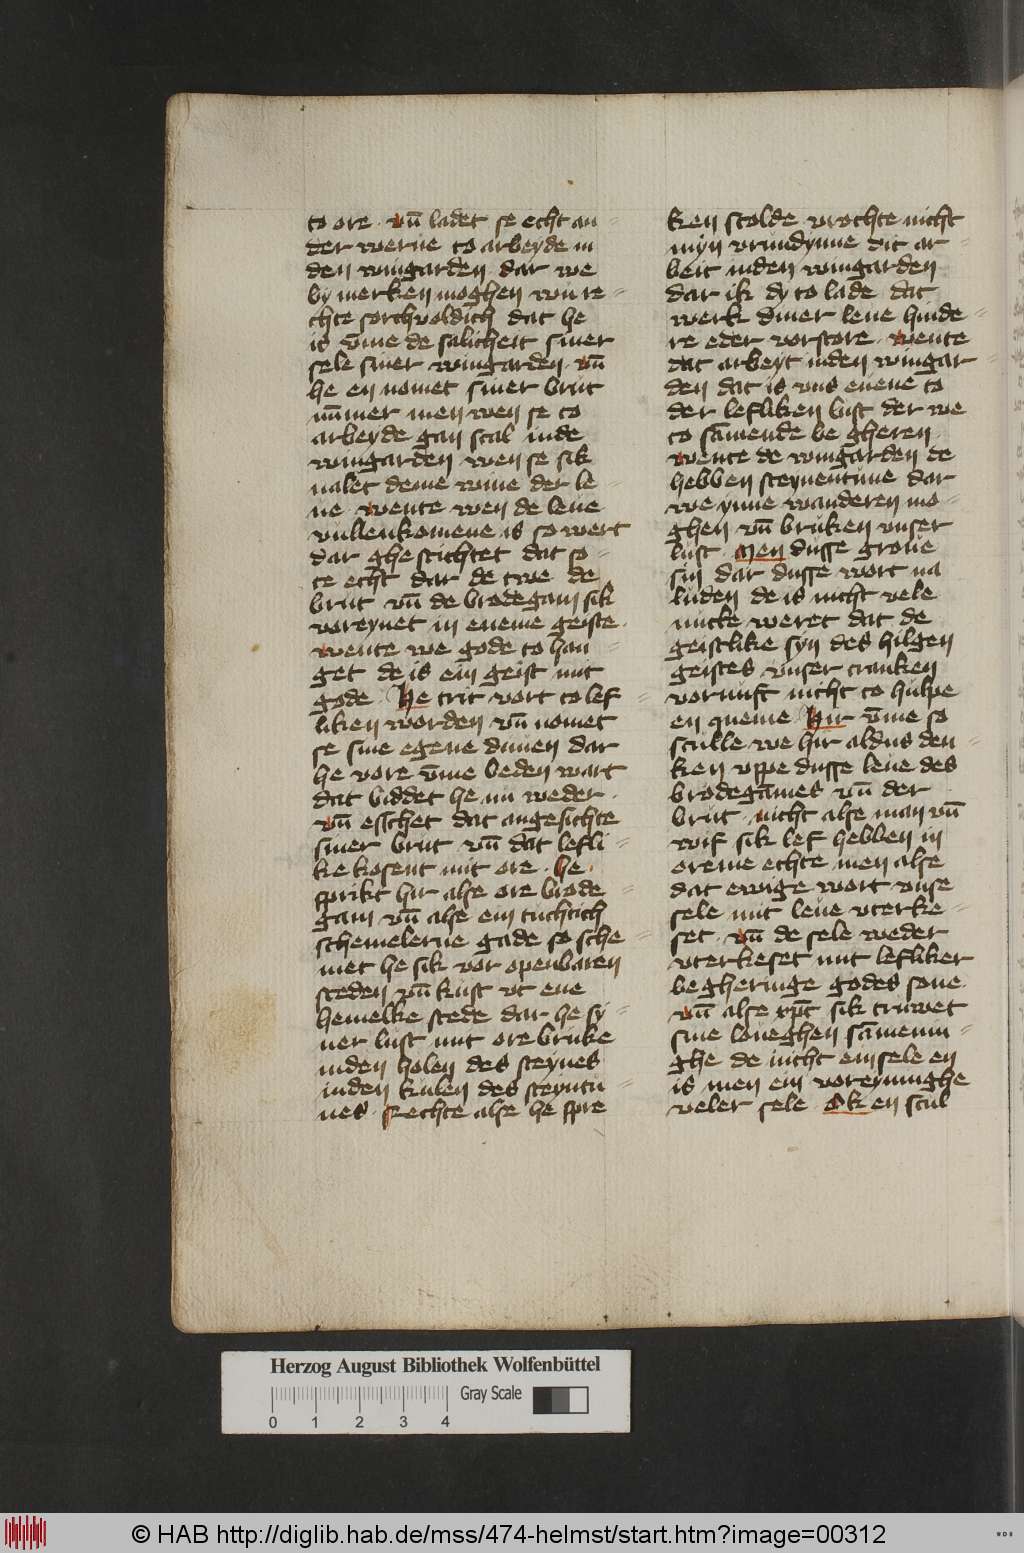 to ore · vn̄ ladet se echt an-
der werue to arbeyde in
den wingarden dar we
by merken moghen wu re-
chte sorchuoldich dat he
is vm̄e de salicheit siner
sele siner wingarden · vn̄
he en nomet siner brut
nūmer men wen se to
arbeyde gan scal inde
wingarden wen se sik
nalet deme wine der le-
ue wente wen de leue
vullenkomene is so wert
dar ghestichtet dat so-
te echt dar de twe de
brut vn̄ de brodegam sik
voreynet in eneme geiste ·
wente we gode to han-
get de is ein geist mit
gode · He trit vort to lef-
liken worden vn̄ nomet
se sine egene duuen dar
he vore vm̄e beden wart
dat biddet he nu weder ·
vn̄ esschet dat angesichte
siner brut vn̄ dat lefli-
ke kosent mit ore · he
sprikt hir alse ore brode-
gam vn̄ alse ein tuchtich
schemelerne gade so sche-
met he sik vor openbaren
steden vn̄ kust vt ene
hemelke stede dar he sy-
ner lust mit ore bruke
inden holen des steynes
inden kulen des steyntu-
nes · Rechte alse he spre
ken scolde vrochte nicht
myn vrundynne dit ar-
beit inden wingarden
dar ik dy to lade dat
werk diner leue hinde-
re eder vorstore · wente
dat arbeyt inden wingar-
den dat is vns euene to
der lefliken lust der we
to sāmende be gheren ·
wente de wingarden de
hebben steynentune dar
we ynne wanderen mo-
ghen vn̄ bruken vnser
lust · Men dusse groue
sin dar dusse wort na
luden de is nicht vele
nutte weret dat de
geistlike syn des hilgen
geistes vnser cranken
vornuft nicht to hulpe
en queme · Hir vm̄e so
sculle we hir aldus den-
ken vppe dusse leue des
brodegāmes vn̄ der
brut · nicht alse man vn̄
wif sik lef hebben in
oreme echte men alse
dat ewige wort vnse
sele mit leue vterke-
set · vn̄ de sele weder
vterkeset mit lefliker
begheringe godes sone
vn̄ alse xp̄c sik truwet
sine loueghen sāmenin-
ghe de nicht ein sele en
is men ein voreyninghe
veler sele Ok en scul
Herzog August Bibliothek Wolfenbüttel
0 1 2 3 4
Gray Scale
© HAB http://diglib.hab.de/mss/474-helmst/start.htm?image=00312